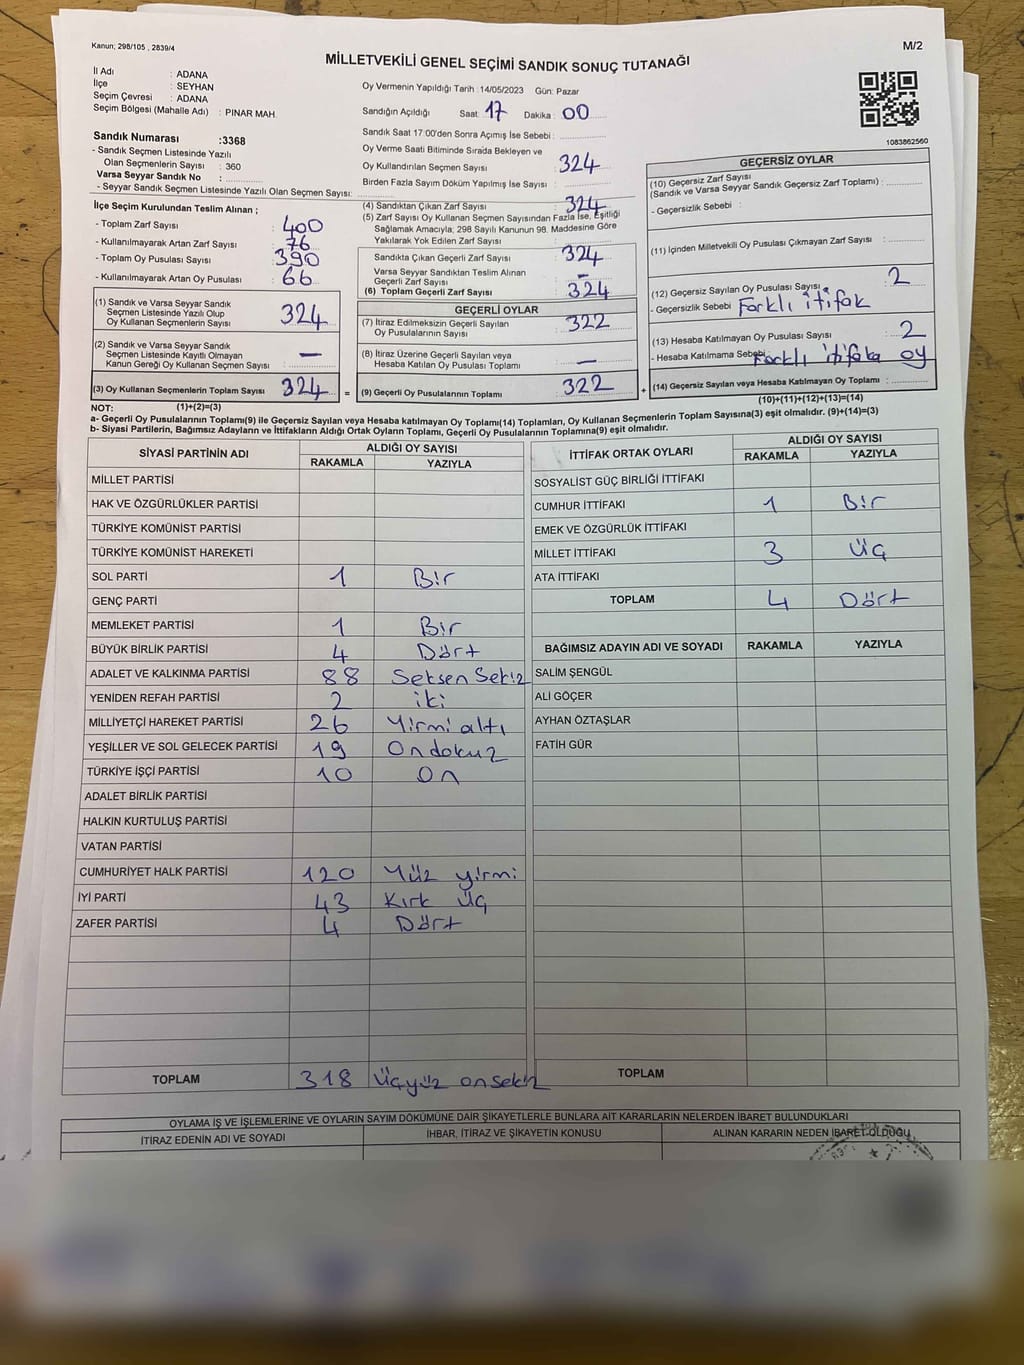 Kanun; 298/105 , 2839/4
M/2
MİLLETVEKİLİ GENEL SEÇİMİ SANDIK SONUÇ TUTANAĞI
İl Adı : ADANA
İlçe : SEYHAN
Seçim Çevresi : ADANA
Seçim Bölgesi (Mahalle Adı) : PINAR MAH.
Sandık Numarası :3368
- Sandık Seçmen Listesinde Yazılı
Olan Seçmenlerin Sayısı : 360
Varsa Seyyar Sandık No :
- Seyyar Sandık Seçmen Listesinde Yazılı Olan Seçmen Sayısı:
Oy Vermenin Yapıldığı Tarih :14/05/2023 Gün: Pazar
Sandığın Açıldığı Saat: 17 Dakika : 00
Sandık Saat 17:00'den Sonra Açımış İse Sebebi :
Oy Verme Saati Bitiminde Sırada Bekleyen ve
Oy Kullandırılan Seçmen Sayısı : 324
Birden Fazla Sayım Döküm Yapılmış İse Sayısı :
1083862560
İlçe Seçim Kurulundan Teslim Alınan ;
- Toplam Zarf Sayısı : 400
- Kullanılmayarak Artan Zarf Sayısı : 76
- Toplam Oy Pusulası Sayısı : 390
- Kullanılmayarak Artan Oy Pusulası : 66
(1) Sandık ve Varsa Seyyar Sandık
Seçmen Listesinde Yazılı Olup
Oy Kullanan Seçmenlerin Sayısı : 324
(2) Sandık ve Varsa Seyyar Sandık
Seçmen Listesinde Kayıtlı Olmayan
Kanun Gereği Oy Kullanan Seçmen Sayısı : —
(3) Oy Kullanan Seçmenlerin Toplam Sayısı : 324 =
(1)+(2)=(3)
(4) Sandıktan Çıkan Zarf Sayısı : 324
(5) Zarf Sayısı Oy Kullanan Seçmen Sayısından Fazla İse, Eşitliği
Sağlamak Amacıyla; 298 Sayılı Kanunun 98. Maddesine Göre
Yakılarak Yok Edilen Zarf Sayısı :
Sandıkta Çıkan Geçerli Zarf Sayısı : 324
Varsa Seyyar Sandıktan Teslim Alınan
Geçerli Zarf Sayısı : —
(6) Toplam Geçerli Zarf Sayısı : 324
GEÇERLİ OYLAR
(7) İtiraz Edilmeksizin Geçerli Sayılan
Oy Pusulalarının Sayısı : 322
(8) İtiraz Üzerine Geçerli Sayılan veya
Hesaba Katılan Oy Pusulası Toplamı : —
(9) Geçerli Oy Pusulalarının Toplamı : 322 +
GEÇERSİZ OYLAR
(10) Geçersiz Zarf Sayısı
(Sandık ve Varsa Seyyar Sandık Geçersiz Zarf Toplamı) :
- Geçersizlik Sebebi :
(11) İçinden Milletvekili Oy Pusulası Çıkmayan Zarf Sayısı :
(12) Geçersiz Sayılan Oy Pusulası Sayısı : 2
- Geçersizlik Sebebi : Farklı itifak
(13) Hesaba Katılmayan Oy Pusulası Sayısı : 2
- Hesaba Katılmama Sebebi Farklı itifaka oy
(14) Geçersiz Sayılan veya Hesaba Katılmayan Oy Toplamı :
(10)+(11)+(12)+(13)=(14)
NOT:
a- Geçerli Oy Pusulalarının Toplamı(9) ile Geçersiz Sayılan veya Hesaba katılmayan Oy Toplamı(14) Toplamları, Oy Kullanan Seçmenlerin Toplam Sayısına(3) eşit olmalıdır. (9)+(14)=(3)
b- Siyasi Partilerin, Bağımsız Adayların ve İttifakların Aldığı Ortak Oyların Toplamı, Geçerli Oy Pusulalarının Toplamına(9) eşit olmalıdır.
SİYASİ PARTİNİN ADI ALDIĞI OY SAYISI
RAKAMLA YAZIYLA
MİLLET PARTİSİ
HAK VE ÖZGÜRLÜKLER PARTİSİ
TÜRKİYE KOMÜNİST PARTİSİ
TÜRKİYE KOMÜNİST HAREKETİ
SOL PARTİ 1 Bir
GENÇ PARTİ
MEMLEKET PARTİSİ 1 Bir
BÜYÜK BİRLİK PARTİSİ 4 Dört
ADALET VE KALKINMA PARTİSİ 88 Seksen Sekiz
YENİDEN REFAH PARTİSİ 2 iki
MİLLİYETÇİ HAREKET PARTİSİ 26 Yirmi altı
YEŞİLLER VE SOL GELECEK PARTİSİ 19 Ondokuz
TÜRKİYE İŞÇİ PARTİSİ 10 On
ADALET BİRLİK PARTİSİ
HALKIN KURTULUŞ PARTİSİ
VATAN PARTİSİ
CUMHURİYET HALK PARTİSİ 120 Yüz yirmi
İYİ PARTİ 43 Kırk üç
ZAFER PARTİSİ 4 Dört
TOPLAM 318 üçyüz onsekiz
İTTİFAK ORTAK OYLARI ALDIĞI OY SAYISI
RAKAMLA YAZIYLA
SOSYALİST GÜÇ BİRLİĞİ İTTİFAKI
CUMHUR İTTİFAKI 1 Bir
EMEK VE ÖZGÜRLÜK İTTİFAKI
MİLLET İTTİFAKI 3 Üç
ATA İTTİFAKI
TOPLAM 4 Dört
BAĞIMSIZ ADAYIN ADI VE SOYADI RAKAMLA YAZIYLA
SALİM ŞENGÜL
ALİ GÖÇER
AYHAN ÖZTAŞLAR
FATİH GÜR
TOPLAM
OYLAMA İŞ VE İŞLEMLERİNE VE OYLARIN SAYIM DÖKÜMÜNE DAİR ŞİKAYETLERLE BUNLARA AİT KARARLARIN NELERDEN İBARET BULUNDUKLARI
İTİRAZ EDENİN ADI VE SOYADI İHBAR, İTİRAZ VE ŞİKAYETİN KONUSU ALINAN KARARIN NEDEN İBARET OLDUĞU